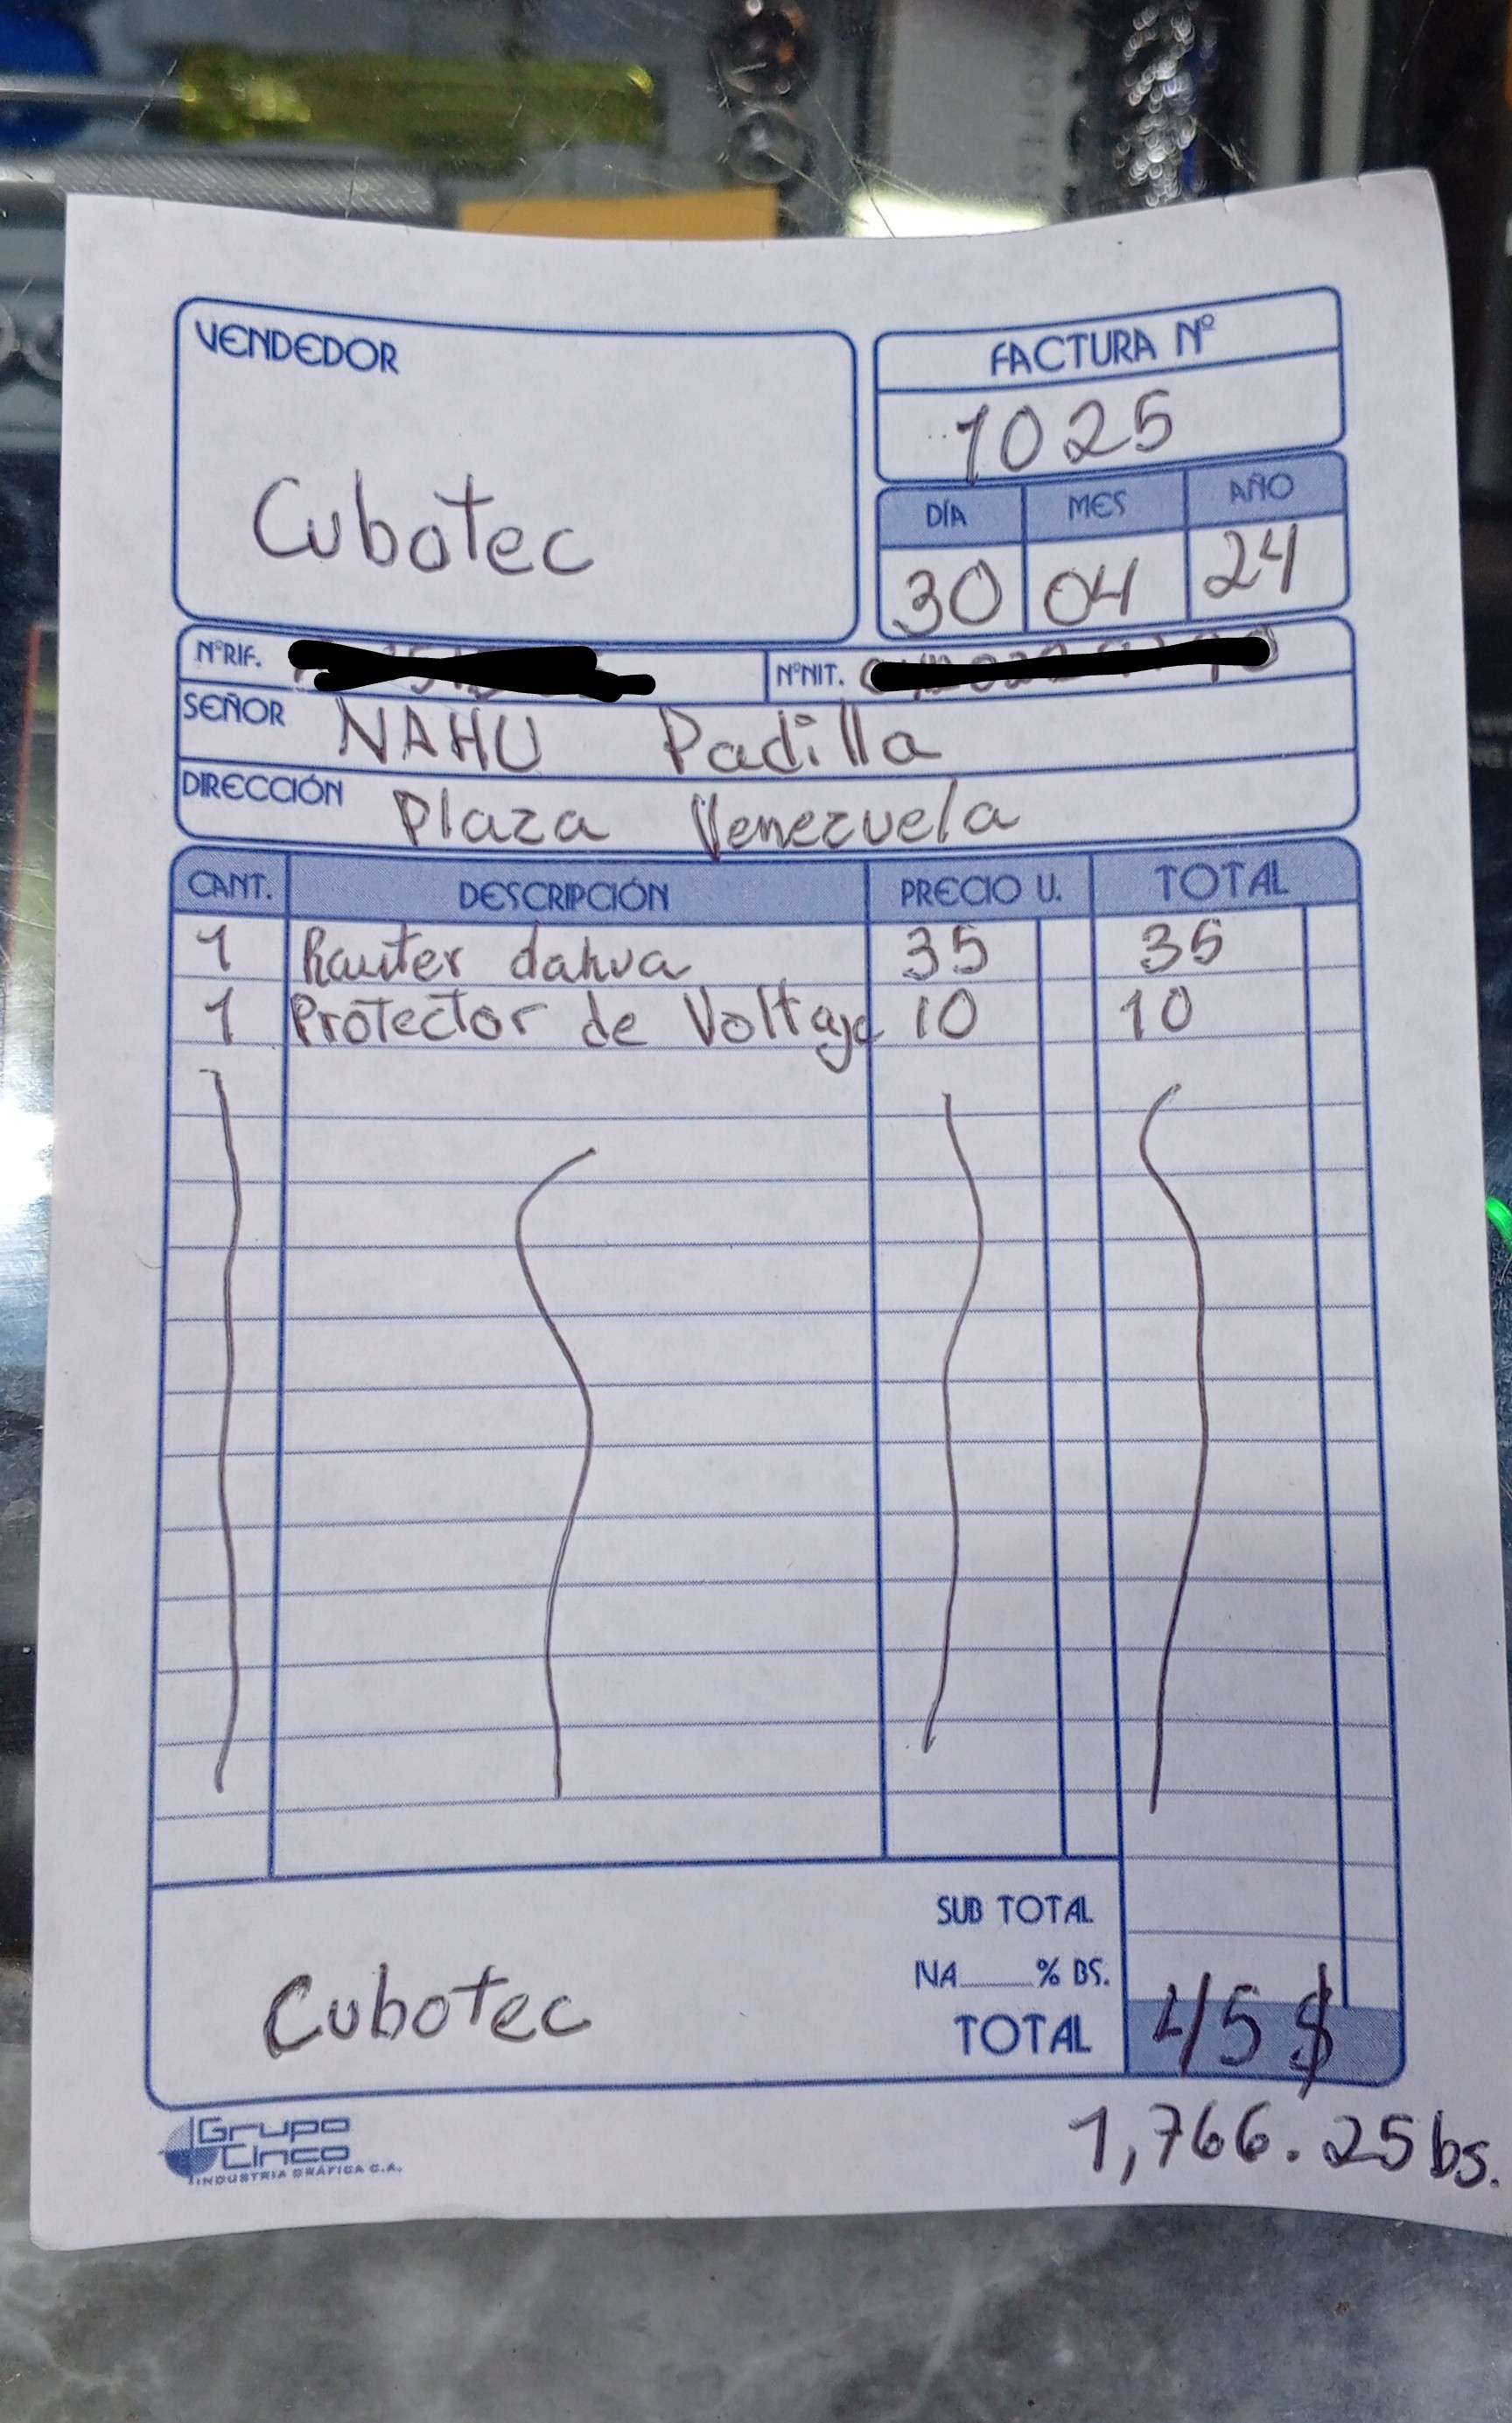 VENDEDOR
Cubotec
FACTURA Nº
1025
DÍA MES AÑO
30 04 24
NºRIF.
NºNIT.
SEÑOR NAHU Padilla
DIRECCIÓN Plaza Venezuela
CANT. DESCRIPCIÓN PRECIO U. TOTAL
1 Rauter dahua 35 35
1 Protector de Voltaje 10 10
SUB TOTAL
IVA____% BS.
TOTAL 45 $
Cubotec
1,766.25 bs.
Grupo
Cinco
INDUSTRIA GRÁFICA C.A.